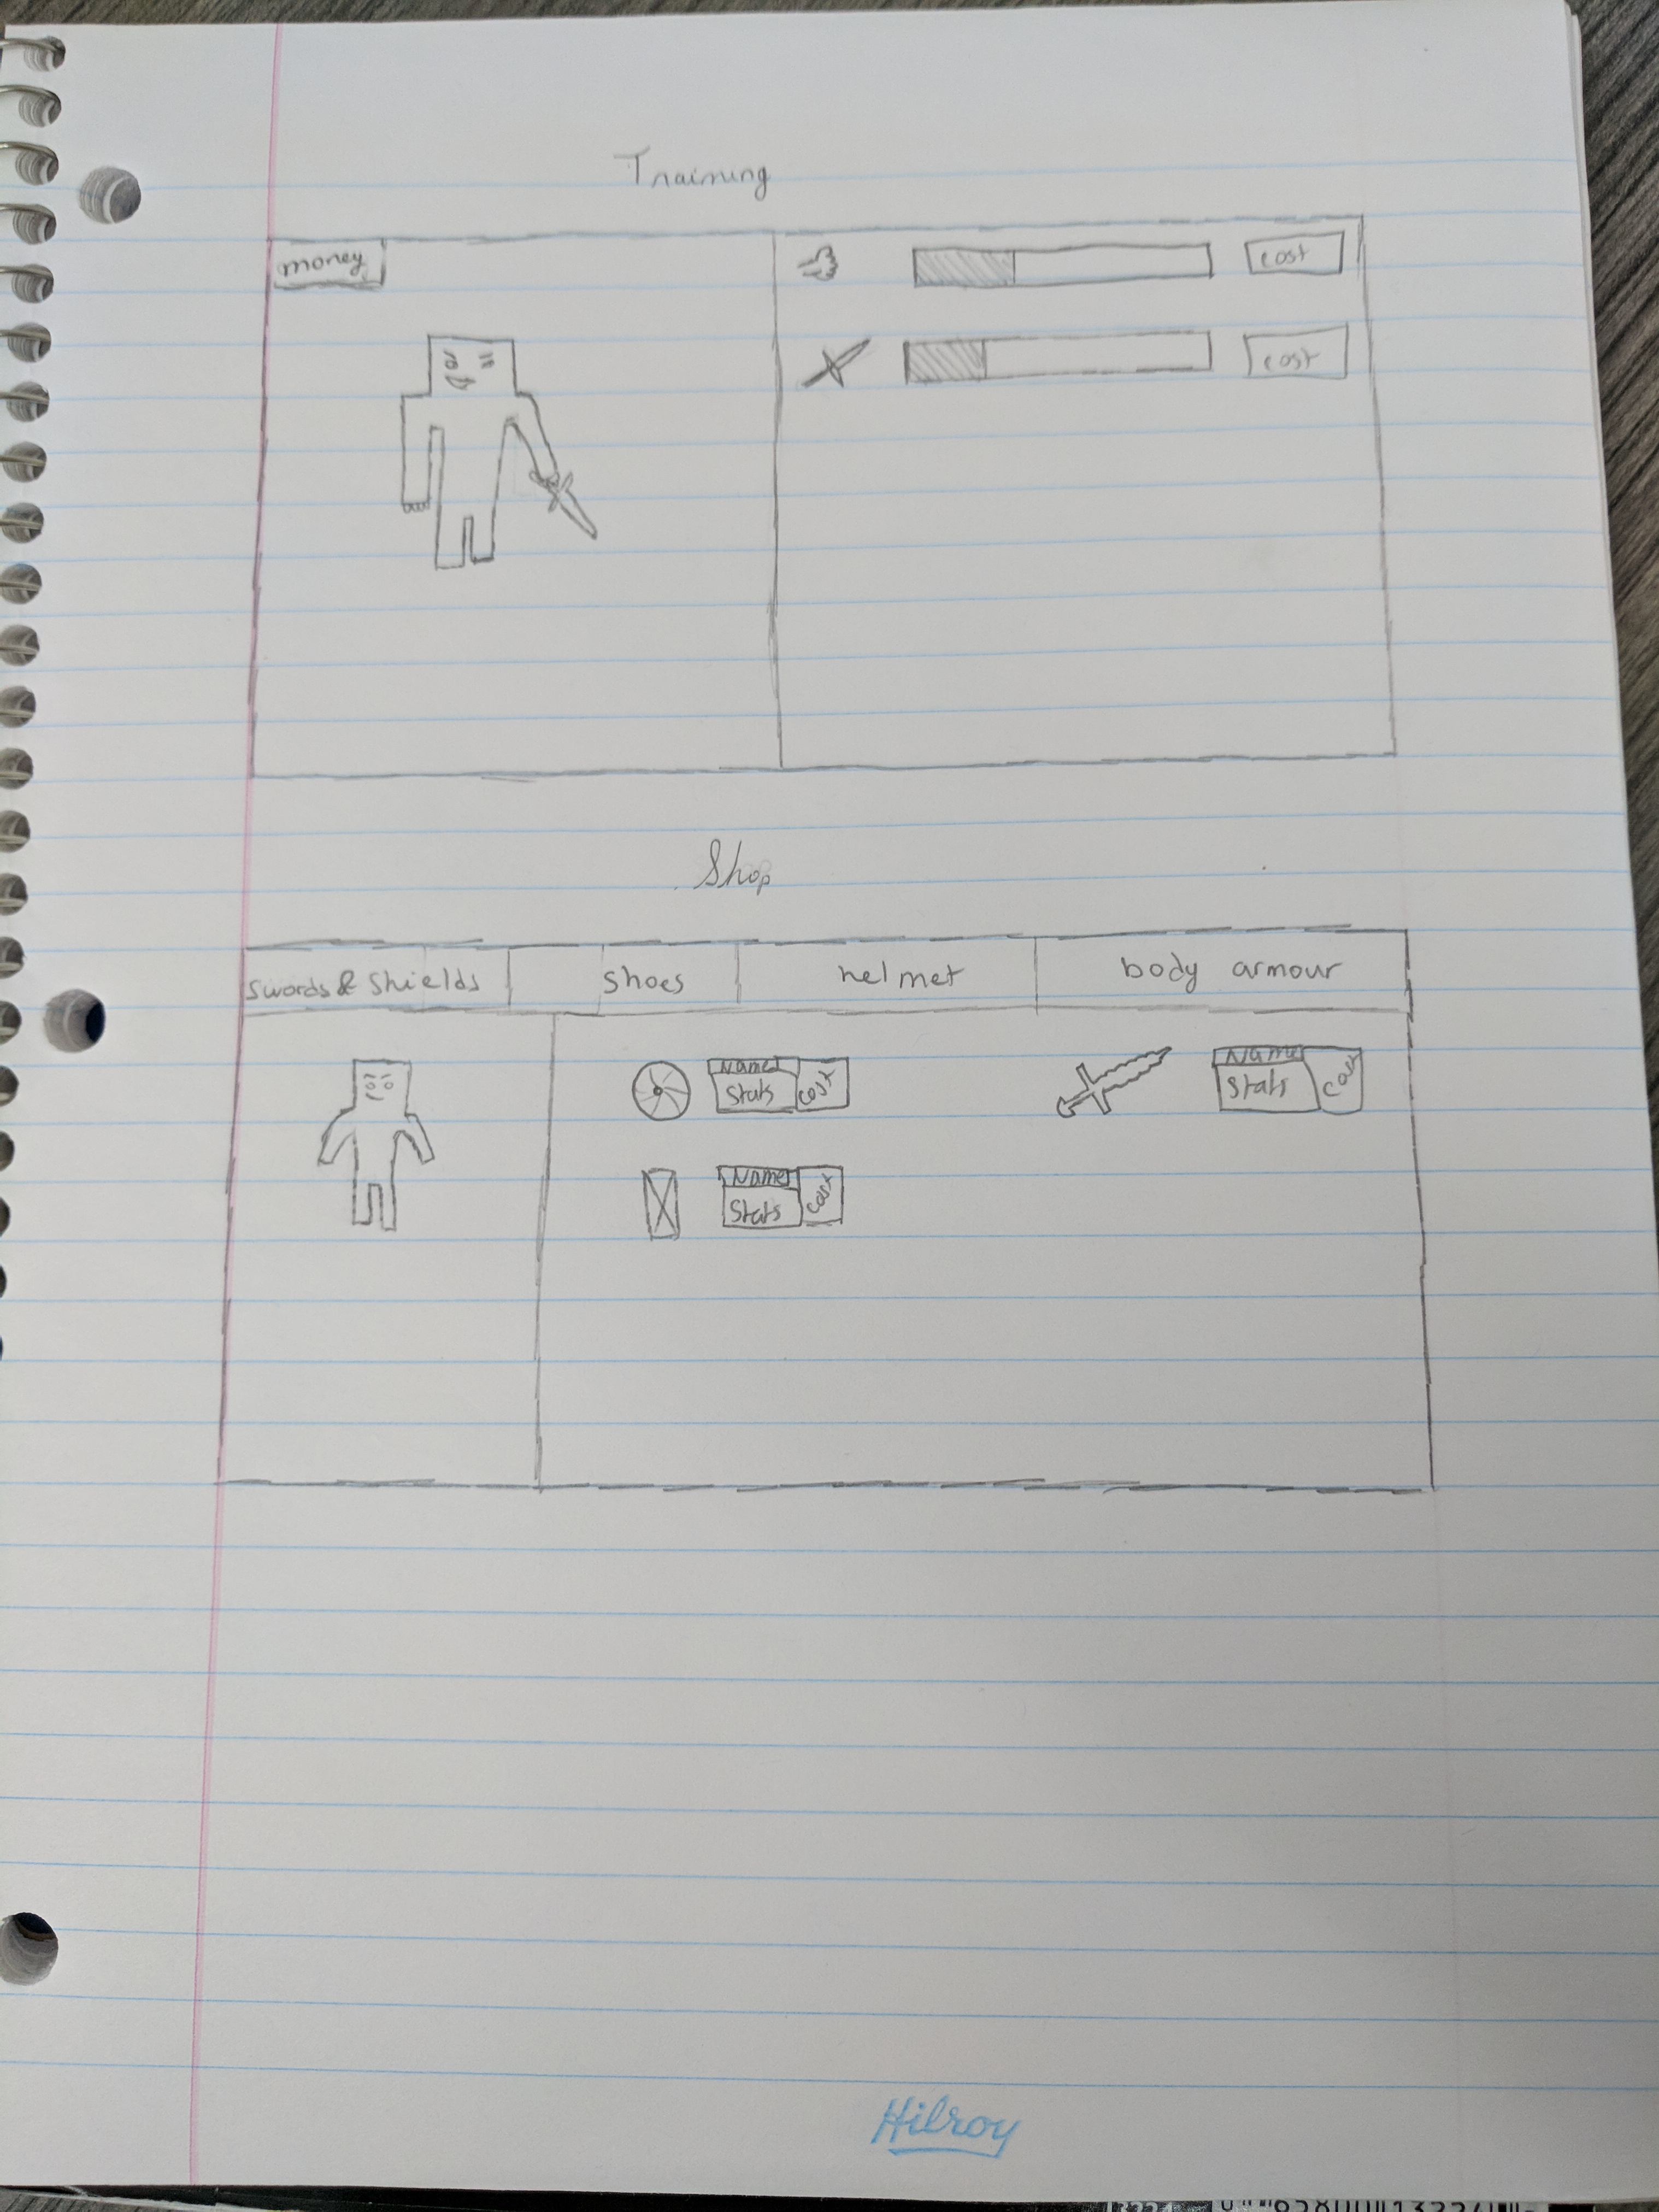 Training
money
cost
cost
Shop
Swords & Shields shoes helmet body armour
Name
Stats cost
Name
Stats cost
Name
Stats cost
Hilroy